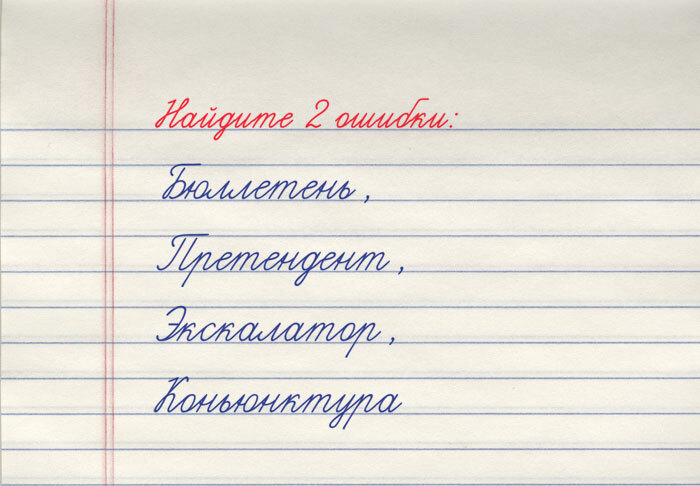 Найдите 2 ошибки:
Бюллетень,
Претендент,
Экскалатор,
Коньюнктура